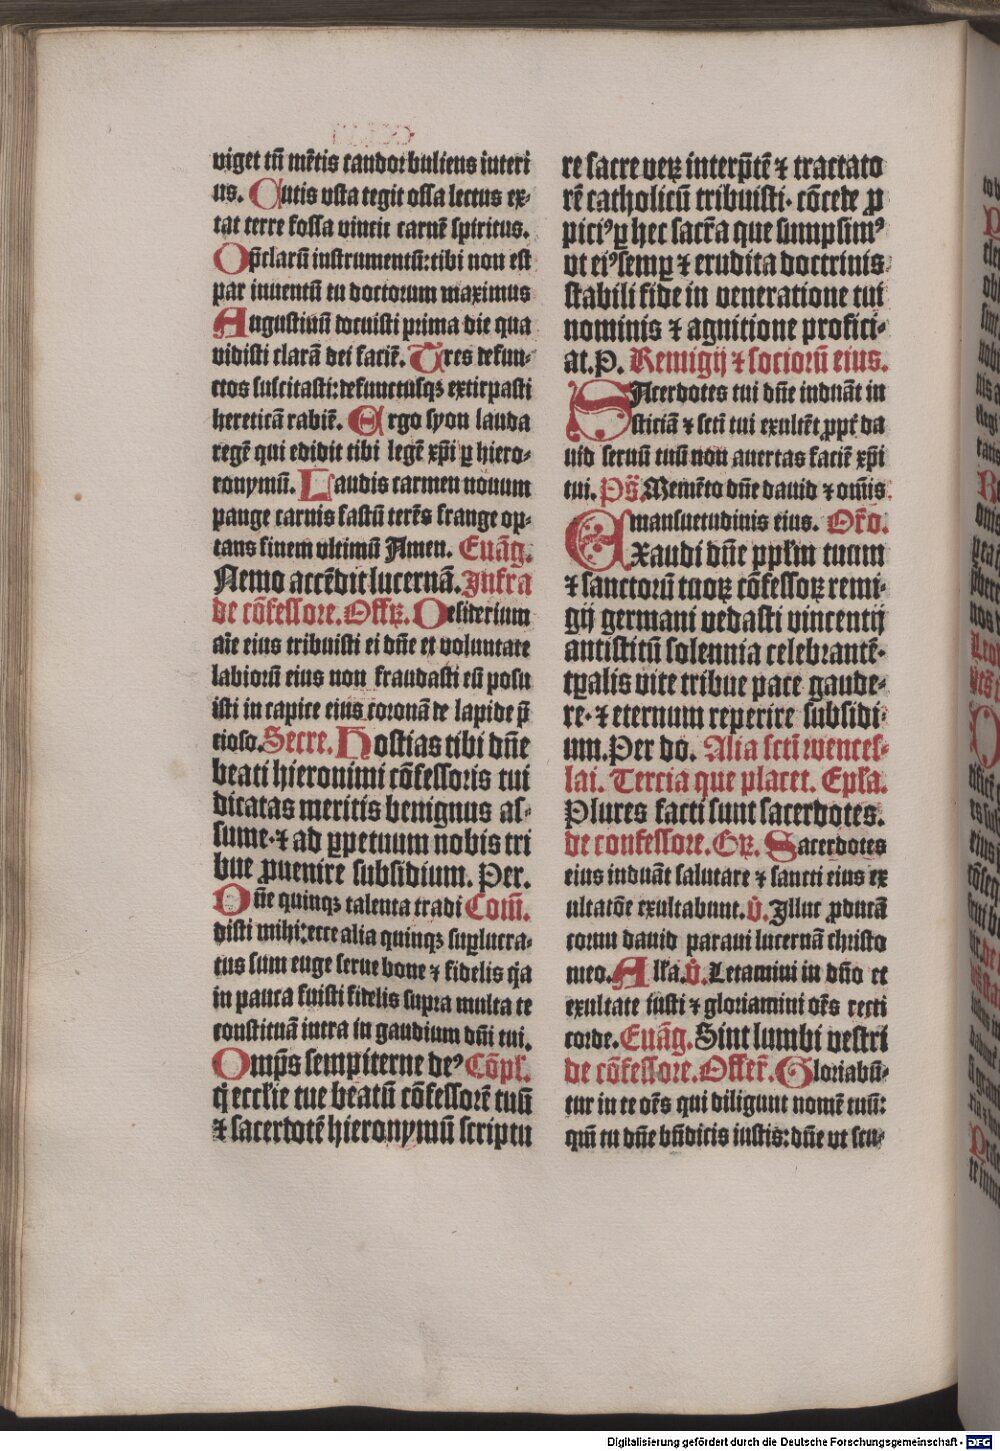 viget tū mētis candor buliens interi
us. Cutis vsta tegit ossa lectus ex-
tat terre fossa vincit carnē spiritus.
Op̄clarū instrumentū: tibi non est
par inuentū tu doctorum maximus
Augustinū docuisti prima die qua
vidisti clarā dei faciē. Tres defun-
ctos suscitasti: defunctusqꝫ extirpasti
hereticā rabiē. Ergo syon lauda
regē qui edidit tibi legē xp̄i ꝑ hiero-
ronymū. Laudis carmen nouum
pange carnis fastū terēs frange op-
tans finem vltimū Amen. Euāg.
Nemo accēdit lucernā. Infra
de cōfessore. Offꝝ. Desiderium
aīe eius tribuisti ei dn̄e et voluntate
labiorū eius non fraudasti eū posu
isti in capite eius coronā de lapide p̄
cioso. Secre. Hostias tibi dn̄e
beati hieronimi cōfessoris tui
dicatas meritis benignus as-
sume· ⁊ ad ꝑpetuum nobis tri
bue ꝓuenire subsidium. Per.
Dn̄e quinqꝫ talenta tradi Com̄.
disti mihi: ecce alia quinqꝫ suꝑlucra-
tus sum euge serue bone ⁊ fidelis q̇a
in pauca fuisti fidelis supra multa te
constituā intra in gaudium dn̄i tui.
Omp̄s sempiterne deꝰ Cōpl̄.
q̄ eccl̄ie tue beatū cōfessorē tuū
⁊ sacerdotē hieronymū scriptu
re sacre veꝝ interp̄tē ⁊ tractato
rē catholicū tribuisti· cōcede ꝓ
piciꝰ ꝑ hec sacr̄a que sumpsimꝰ
vt eiꝰ semꝑ ⁊ erudita doctrinis
stabili fide in veneratione tui
nominis ⁊ agnitione profici-
at. P. Remigij ⁊ socioru eius.
SAcerdotes tui dn̄e induāt iu
sticiā ⁊ sc̄ti tui exultēt ꝓpt̄ da
uid seruū tuū non auertas faciē xp̄i
tui. Ps̄. Memēto dn̄e dauid ⁊ om̄is
mansuetudinis eius. Or̄o.
EXaudi dn̄e ppl̄m tuum
⁊ sanctorū tuoꝝ cōfessoꝝ remi-
gij germani vedasti vincentij
antistitū solennia celebrantē·
tꝑalis vite tribue pace gaude-
re· ⁊ eternum reperire subsidi-
um. Per do. Alia sc̄ti wences-
lai. Tercia que placet. Epl̄a.
Plures facti sunt sacerdotes.
de confessore. Gꝝ. Sacerdotes
eius induāt salutare ⁊ sancti eius ex
ultatōe exultabunt. v̊. Illuc ꝓducā
cornu dauid paraui lucernā christo
meo. All̄a. v̊. Letamini in dn̄o et
exultate iusti ⁊ gloriamini oēs recti
corde. Euāg. Sint lumbi vestri
de cōfessore. Offer̄. Gloriabū-
tur in te oēs qui diligunt nomē tuū:
qm̄ tu dn̄e bn̄dicis iustis: dn̄e vt scu-
Digitalisierung gefördert durch die Deutsche Forschungsgemeinschaft - DFG